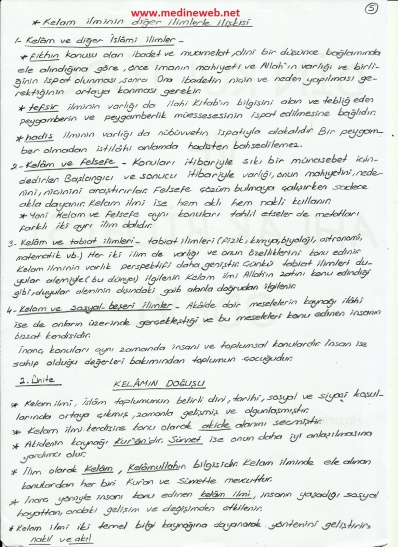 www.medineweb.net
5
* Kelam ilminin diğer ilimlerle ilişkisi
1- Kelâm ve diğer İslâmi ilimler -
* Fıkhın konusu olan ibadet ve muamelat, dini bir düşünce bağlamında
ele alındığına göre, önce imanın mahiyeti ve Allah'ın varlığı ve birli-
ğinin ispat olunması, sonra Ona ibadetin niçin ve neden yapılması ge-
rektiğinin ortaya konması gerekir.
* tefsir ilminin varlığı da ilahi Kitab'ın bilgisini alan ve tebliğ eden
peygamberin ve peygamberlik müessesesinin ispat edilmesine bağlıdır.
* hadis ilminin varlığı da nübüvvetin ispatıyla alakalıdır Bir peygam-
ber olmadan ıstılâhi anlamda hadisten bahsedilemez.
2- Kelâm ve Felsefe - Konuları itibariyle sıkı bir münasebet için-
dedirler Başlangıcı ve sonucu itibariyle varlığı, onun mahiyetini, nede-
nini, niçinini araştırırlar. Felsefe çözüm bulmaya çalışırken sadece
akla dayanır. Kelam ilmi ise hem aklı hem nakli kullanır.
* Yani Kelam ve Felsefe aynı konuları tahlil etseler de metotları
farklı iki ayrı ilim dalıdır.
3. Kelâm ve tabiat ilimleri - tabiat ilimleri (fizik, kimya, biyoloji, astronomi,
matematik vb.) Her iki ilim de varlığı ve onun özelliklerini konu edinir
Kelam ilminin varlık perspektifi daha geniştir. Çünkü tabiat ilimleri du-
yular alemiyle (bu dünya) ilgilenir. Kelam ilmi Allah'ın zatını konu edindiği
gibi, duyular aleminin dışındaki gaib alanla doğrudan ilgilenir.
4- Kelam ve Sosyal-beşeri ilimler - Akâide dair meselelerin kaynağı ilâhi
ise de onların üzerinde gerçekleştiği ve bu meseleleri konu edinen insanın
bizzat kendisidir.
İnanç konuları aynı zamanda insani ve toplumsal konulardır. İnsan ise
sahip olduğu değerleri bakımından toplumun çocuğudur.
2. Ünite
KELÂMIN DOĞUŞU
* Kelam ilmi, İslâm toplumunun belirli dini, tarihi, sosyal ve siyasi koşul-
larında ortaya çıkmış, zamanla gelişmiş ve olgunlaşmıştır.
* Kelam ilmi kendisine konu olarak akide alanını seçmiştir.
* Akidenin kaynağı Kur'ân'dır. Sünnet ise onun daha iyi anlaşılmasına
yardımcı olur.
* İlim olarak Kelâm, Kelâmullahın bilgisidir. Kelam ilminde ele alınan
konulardan her biri Kur'an ve Sünnette mevcuttur.
* İnanç yönüyle insanı konu edinen kelâm ilmi, insanın yaşadığı sosyal
hayattan, ondaki gelişim ve değişimden etkilenir.
* Kelam ilmi iki temel bilgi kaynağına dayanarak yöntemini geliştirir:
nakil ve akıl